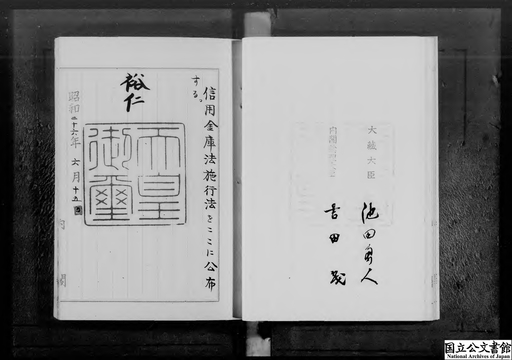 大蔵大臣
池田勇人
内閣総理大臣
吉田茂
信用金庫法施行法をここに公布
する。
裕仁
天皇
御璽
昭和二十六年六月十五日
内閣
国立公文書館
National Archives of Japan